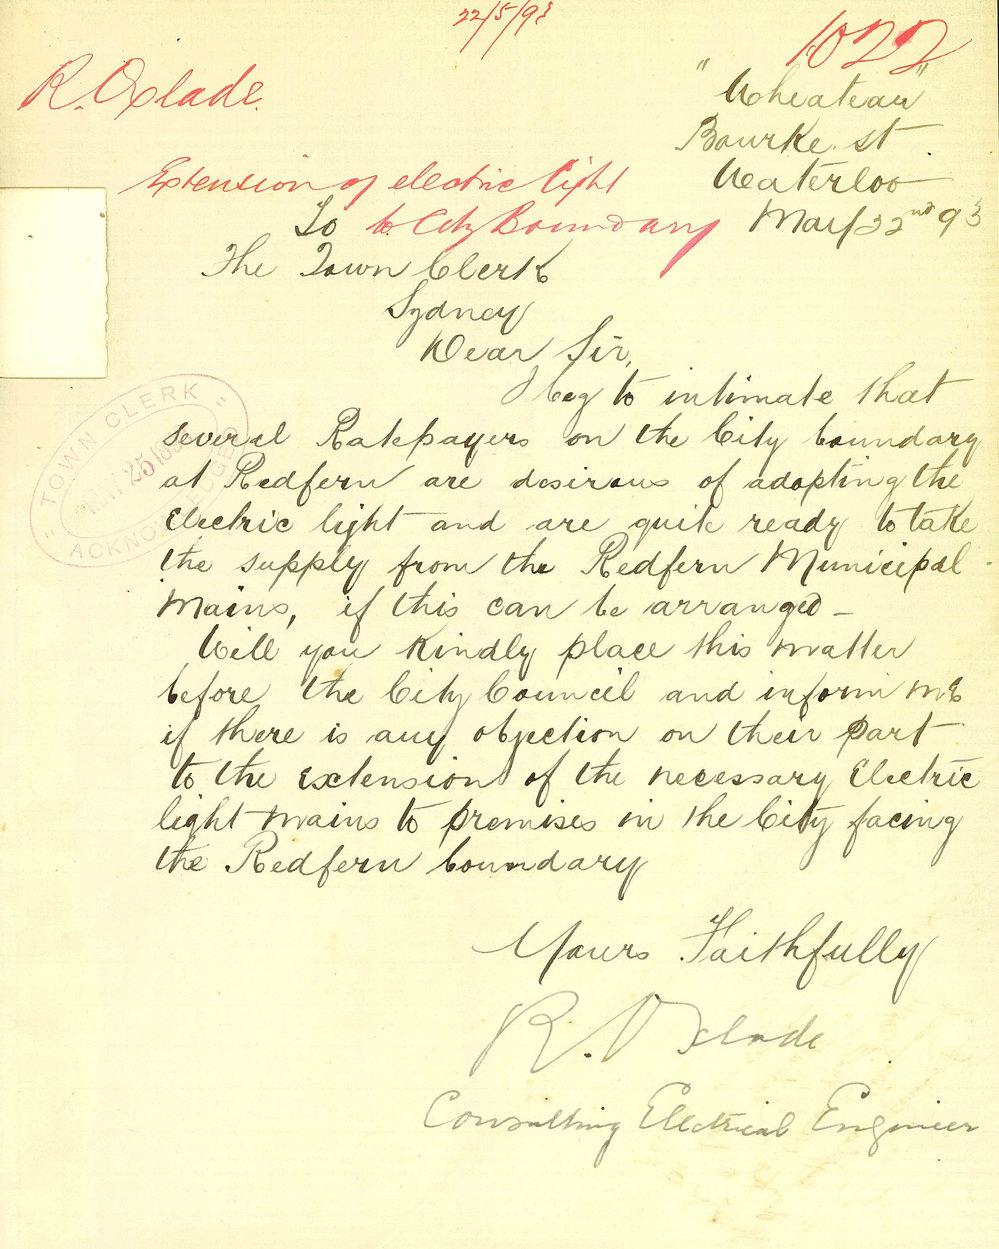 22/5/93
1022
R. Oxlade.
"Wheatear"
Bourke st
Waterloo
Extension of electric light
to City Boundary
May 22nd 93
To
The Town Clerk
Sydney
Dear Sir,
I beg to intimate that
several Ratepayers on the City boundary
at Redfern are desirous of adopting the
Electric light and are quite ready to take
the supply from the Redfern Municipal
Mains, if this can be arranged -
Will you kindly place this matter
before the City Council and inform me
if there is any objection on their part
to the extension of the necessary Electric
light mains to premises in the City facing
the Redfern boundary
Yours Faithfully
R. Oxlade
Consulting Electrical Engineer
"TOWN CLERK"
MAY 25 1893
ACKNOWLEDGED